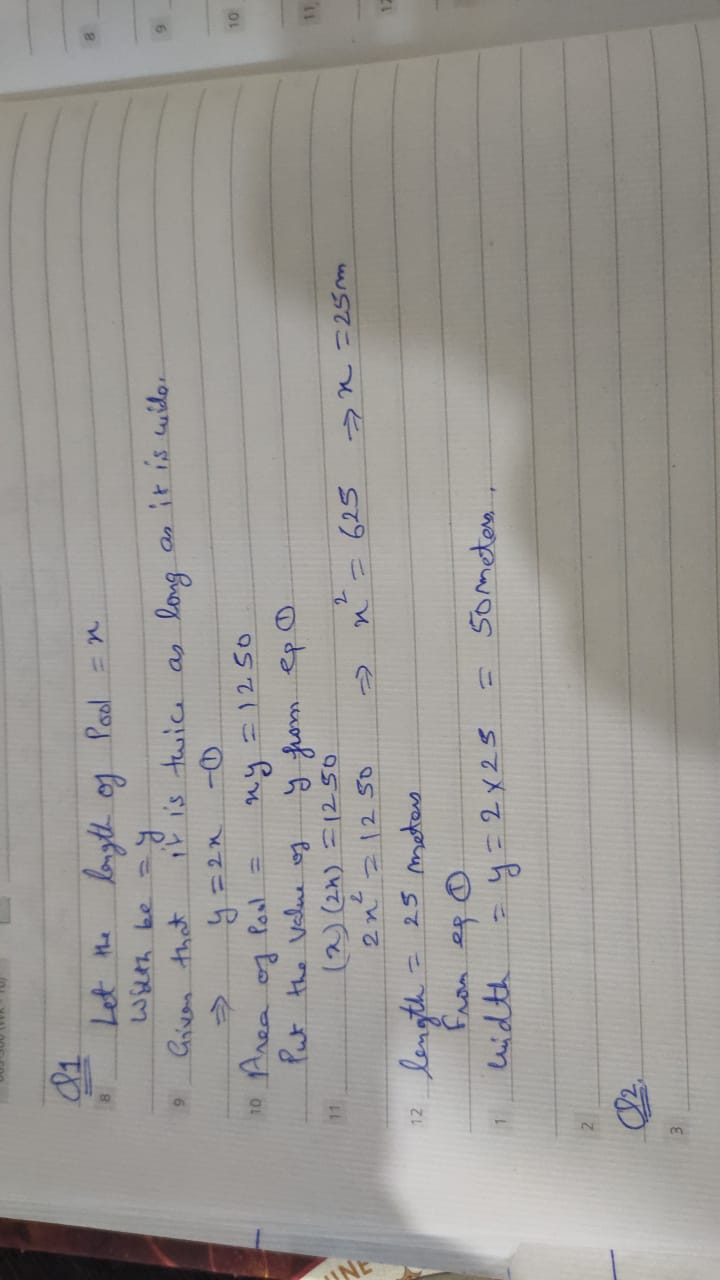 Q1
8 Let the length of Pool = x
Width be = y
9 Given that it is twice as long as it is wide.
⇒ y = 2x -①
10 Area of Pool = xy = 1250
Put the value of y from eq ①
11 (x)(2x) = 1250
2x² = 1250 ⇒ x² = 625 ⇒ x = 25m
12 length = 25 meters
From eq ①
1 width = y = 2×25 = 50 meters.
2
Q2.
3
8
9
10
11
UNE